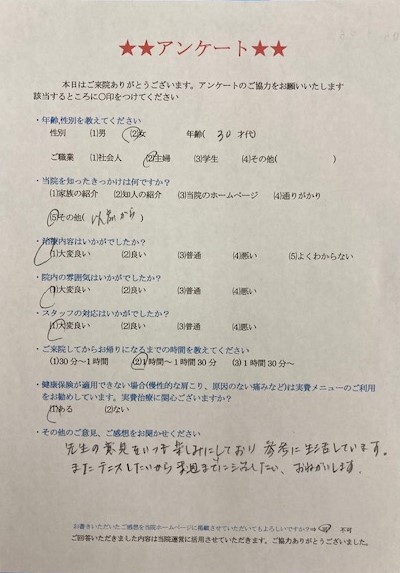 ★★アンケート★★
本日はご来院ありがとうございます。アンケートのご協力をお願いいたします
該当するところに〇印をつけてください
・年齢,性別を教えてください
性別 (1)男 (2)女 年齢( 30 才代)
ご職業 (1)社会人 (2)主婦 (3)学生 (4)その他( )
・当院を知ったきっかけは何ですか?
(1)家族の紹介 (2)知人の紹介 (3)当院のホームページ (4)通りがかり
(5)その他( 以前から )
・治療内容はいかがでしたか?
(1)大変良い (2)良い (3)普通 (4)悪い (5)よくわからない
・院内の雰囲気はいかがでしたか?
(1)大変良い (2)良い (3)普通 (4)悪い
・スタッフの対応はいかがですか?
(1)大変良い (2)良い (3)普通 (4)悪い
・ご来院してからお帰りになるまでの時間を教えてください
(1)30分~1時間 (2)1時間~1時間30分 (3)1時間30分~
・健康保険が適用できない場合(慢性的な肩こり、原因のない痛みなど)は実費メニューのご利用
をお勧めしています。実費治療に関心ございますか?
(1)ある (2)ない
・その他のご意見、ご感想をお聞かせください
先生の意見をいつも楽しみにしており 参考に生活しています。
またテニスしたいから 来週までに したい、おねがいします。
お書きいただいたご感想を当院ホームページに掲載させていただいてもよろしいですか?⇒ 可 不可
ご回答いただきました内容は当院運営に活用させていただきます。ご協力ありがとうございました。